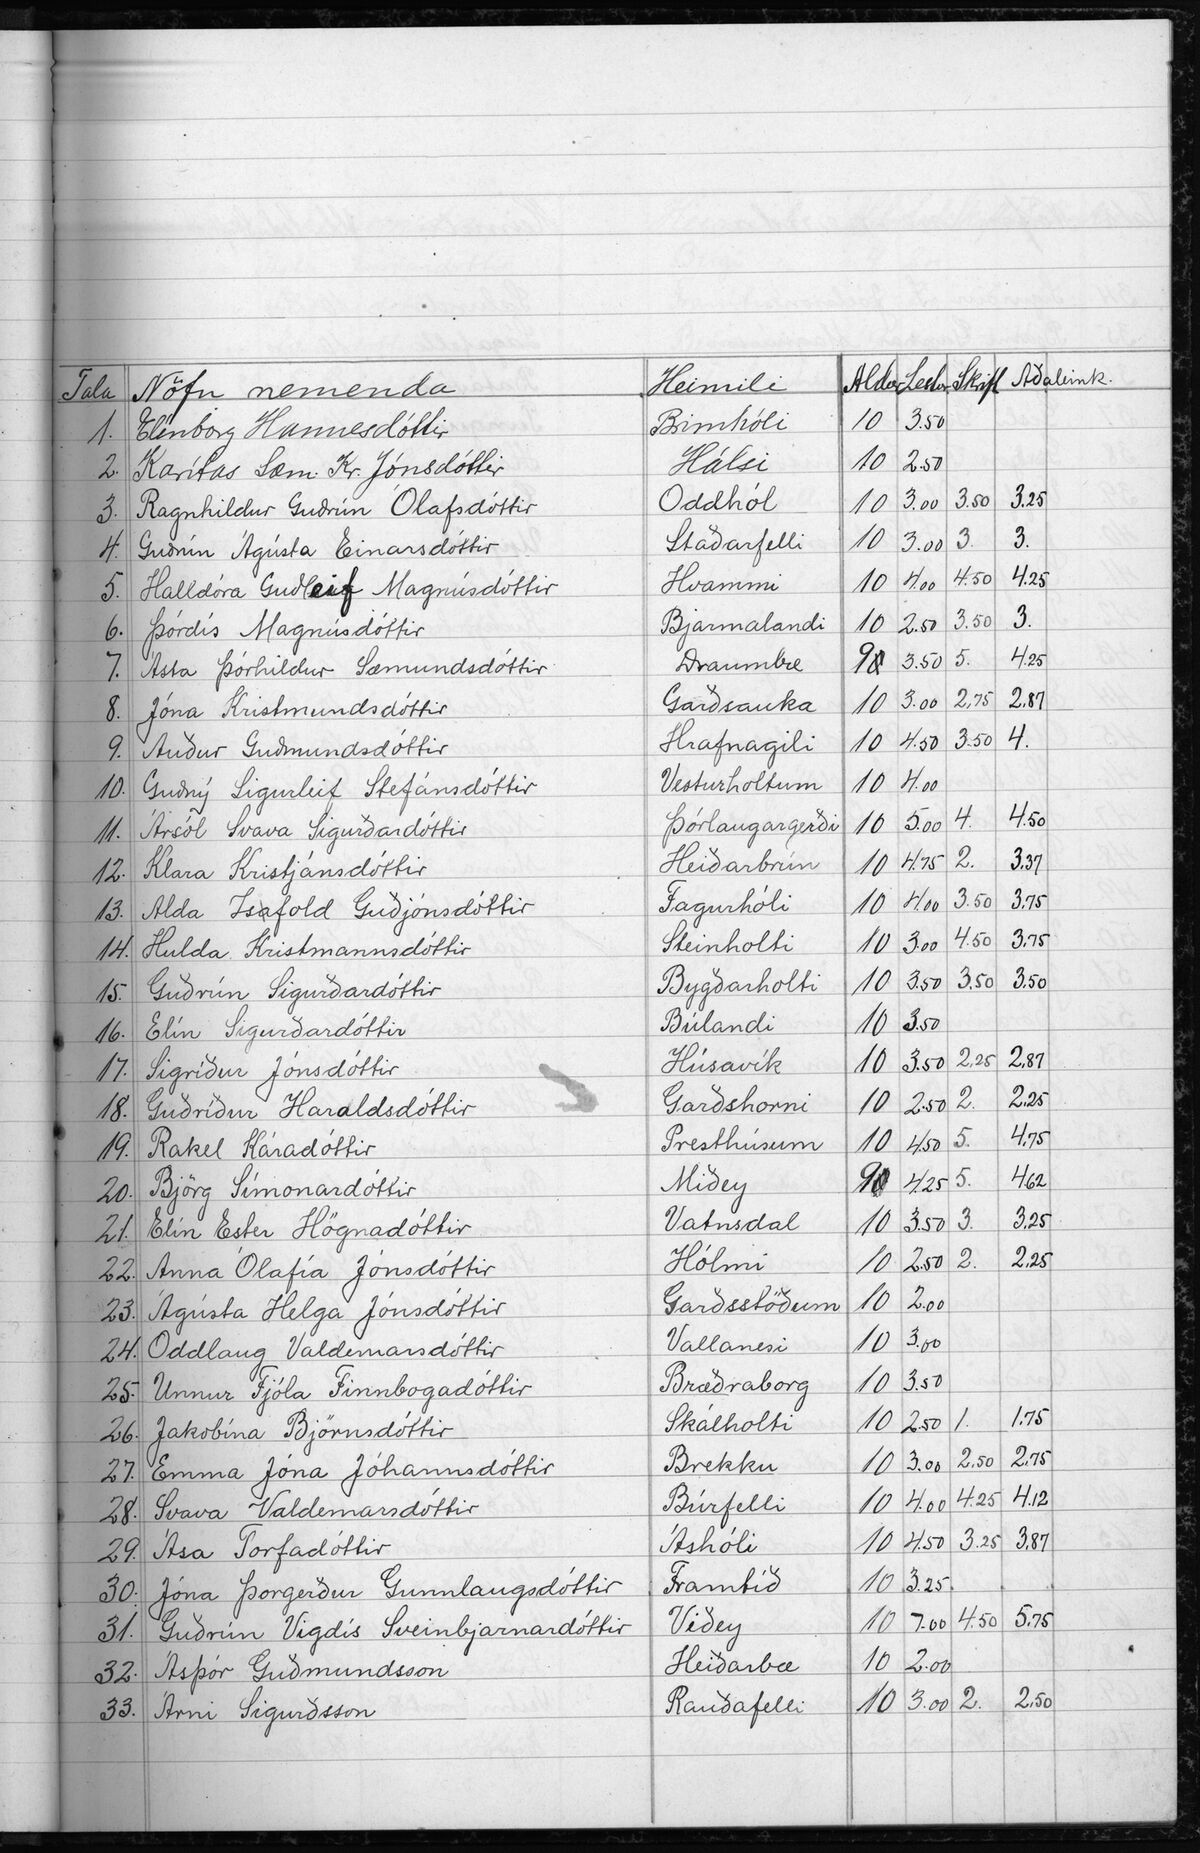 Tala Nöfn nemenda Heimili Aldur Lestur Skrift Aðaleink.
1. Elínborg Hannesdóttir Brimhóli 10 3.50
2. Karítas Sæm. Kr. Jónsdóttir Hálsi 10 2.50
3. Ragnhildur Guðrún Ólafsdóttir Oddhól 10 3.00 3.50 3.25
4. Guðrún Ágústa Einarsdóttir Staðarfelli 10 3.00 3. 3.
5. Halldóra Guðleif Magnúsdóttir Hvammi 10 4.00 4.50 4.25
6. Þórdís Magnúsdóttir Bjarmalandi 10 2.50 3.50 3.
7. Ásta Þórhildur Sæmundsdóttir Draumbæ 9 3.50 5. 4.25
8. Jóna Kristmundsdóttir Garðsauka 10 3.00 2.75 2.87
9. Auður Guðmundsdóttir Hrafnagili 10 4.50 3.50 4.
10. Guðný Sigurleif Stefánsdóttir Vesturholtum 10 4.00
11. Ársól Svava Sigurðardóttir Þórlaugargerði 10 5.00 4. 4.50
12. Klara Kristjánsdóttir Heiðarbrún 10 4.75 2. 3.37
13. Alda Isafold Guðjónsdóttir Fagurhóli 10 4.00 3.50 3.75
14. Hulda Kristmannsdóttir Steinholti 10 3.00 4.50 3.75
15. Guðrún Sigurðardóttir Bygðarholti 10 3.50 3.50 3.50
16. Elín Sigurðardóttir Búlandi 10 3.50
17. Sigríður Jónsdóttir Húsavík 10 3.50 2.25 2.87
18. Guðríður Haraldsdóttir Garðshorni 10 2.50 2. 2.25
19. Rakel Káradóttir Presthúsum 10 4.50 5. 4.75
20. Björg Símonardóttir Miðey 9 4.25 5. 4.62
21. Elín Ester Högnadóttir Vatnsdal 10 3.50 3. 3.25
22. Anna Ólafía Jónsdóttir Hólmi 10 2.50 2. 2.25
23. Ágústa Helga Jónsdóttir Garðsstöðum 10 2.00
24. Oddlaug Valdemarsdóttir Vallanesi 10 3.00
25. Unnur Fjóla Finnbogadóttir Bræðraborg 10 3.50
26. Jakobína Björnsdóttir Skálholti 10 2.50 1. 1.75
27. Emma Jóna Jóhannsdóttir Brekku 10 3.00 2.50 2.75
28. Svava Valdemarsdóttir Búrfelli 10 4.00 4.25 4.12
29. Ása Torfadóttir Áshóli 10 4.50 3.25 3.87
30. Jóna Þorgerður Gunnlaugsdóttir Framtíð 10 3.25
31. Guðrún Vigdís Sveinbjarnardóttir Viðey 10 7.00 4.50 5.75
32. Ásþór Guðmundsson Heiðarbæ 10 2.00
33. Árni Sigurðsson Rauðafelli 10 3.00 2. 2.50